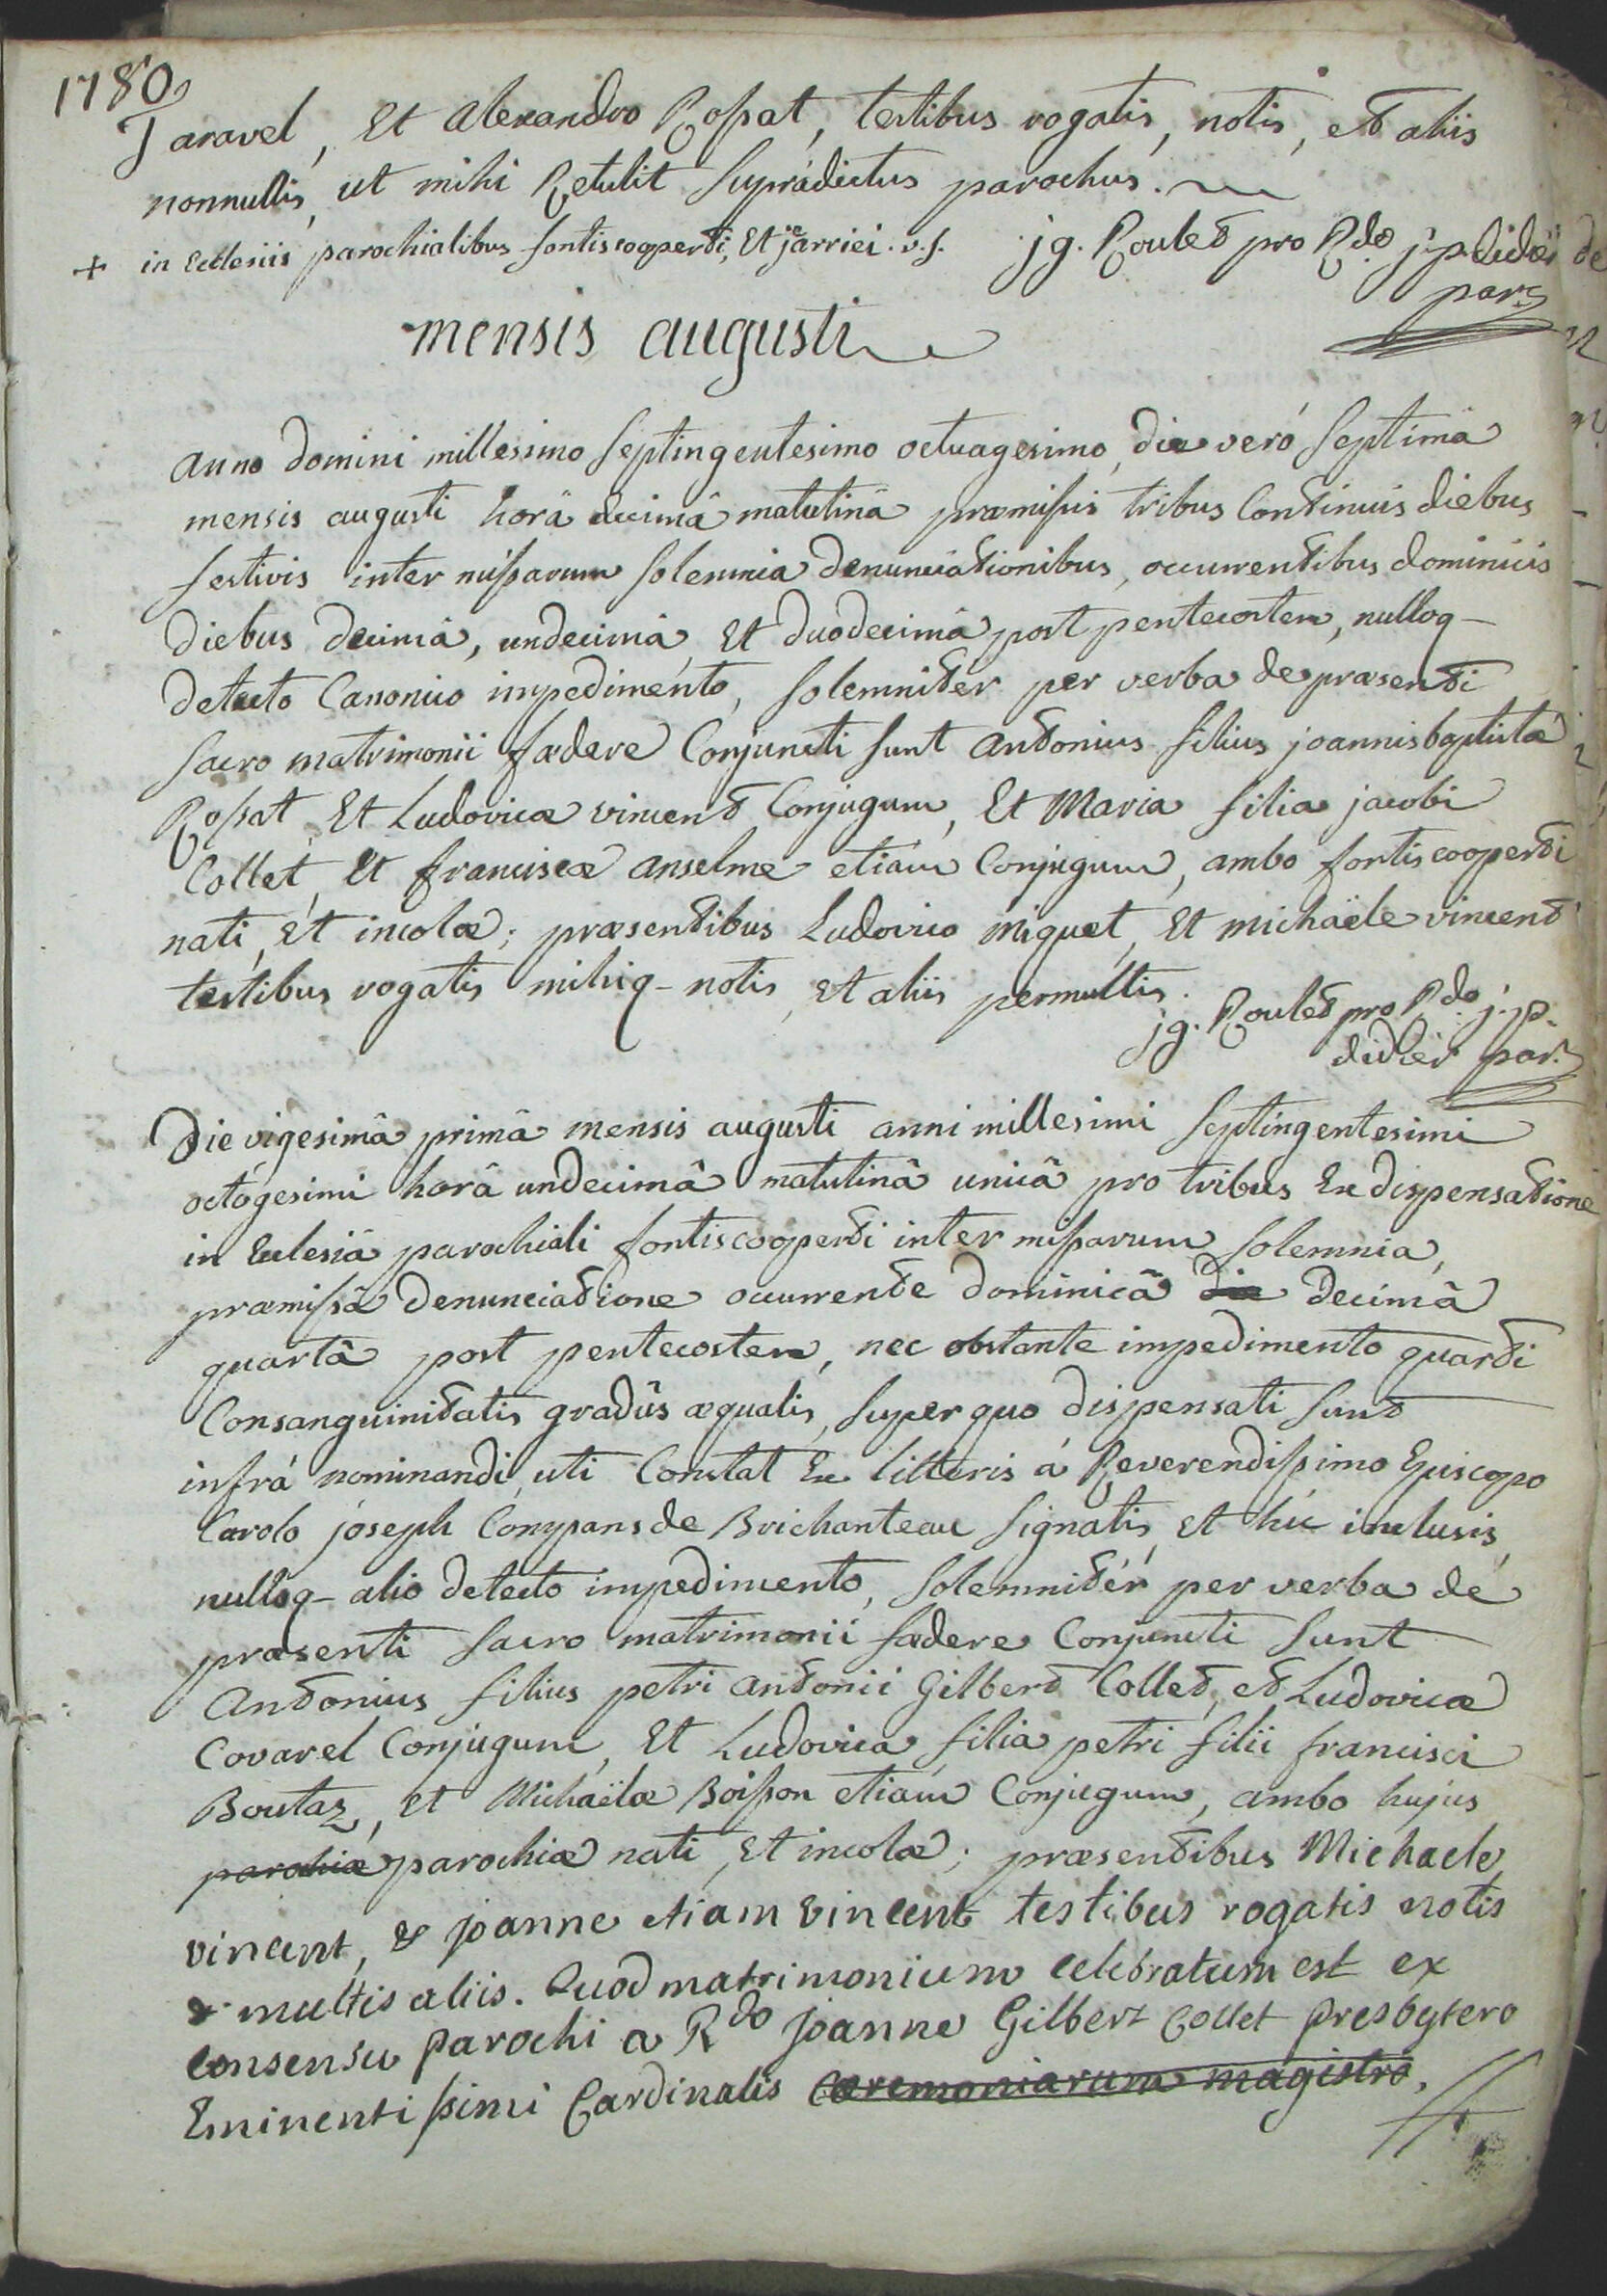 1780
Taravel, Et alexandro Rossat, testibus rogatis, notis, et aliis
nonnullis, ut mihi Retulit supradictus parochus.
+ in Ecclesiis parochialibus fontiscooperti, Et jarriei. v. s. jg. Roulet pro Rdo. j. p. didier
par.
mensis augusti
anno domini millesimo septingentesimo octuagesimo, die veró septimâ
mensis augusti horâ decimâ matutinâ præmissis tribus Continuis diebus
festivis inter missarum solemnia denunciationibus, occurrentibus dominicis
diebus decimâ, undecimâ, Et duodecimâ post pentecosten, nulloq-
detecto Canonico impedimento, solemniter per verba de præsenti
sacro matrimonii fædere Conjuncti sunt antonius filius joannisbaptistæ
Rossat, Et Ludovicæ vincent Conjugum, Et Maria filia jacobi
Collet, Et franciscæ anselme etiam Conjugum, ambo fontiscooperti
nati, Et incolæ; præsentibus Ludovico Miquet, Et michaële vincent
testibus rogatis mihiq- notis, Et aliis permultis.
jg. Roulet pro Rdo. j. p.
didier par.
Die vigesimâ primâ mensis augusti anni millesimi septingentesimi
octogesimi horâ undecimâ matutinâ unicâ pro tribus Ex dispensatione
in Eclesiâ parochiali fontiscooperti inter missarum solemnia,
præmissâ denunciatione occurrente dominicâ die decimâ
quartâ post pentecosten, nec obstante impedimento quarti
Consanguinitatis gradûs æqualis, super quo dispensati sunt
infrá nominandi, uti Constat Ex litteris á Reverendissimo Episcopo
Carolo joseph Compans de Brichanteau signatis, Et hic inclusis,
nulloq- alio detecto impedimento, solemnitér per verba de
præsenti sacro matrimonii fædere Conjuncti sunt
Antonius filius petri antonii Gilbert Collet, et Ludovicæ
Covarel Conjugum, Et Ludovica filia petri filii francisci
Boutaz, et Michaëlæ Boisson etiam Conjugum, ambo hujus
parochiæ parochiæ nati, Et incolæ; præsentibus Michaele
vincent, & joanne etiam vincent testibus rogatis notis
& multis aliis. Quod matrimonium celebratum est ex
consensu parochi a Rdo joanne Gilbert Collet presbytero
Eminentissimi Cardinalis Cæremoniarum magistro.